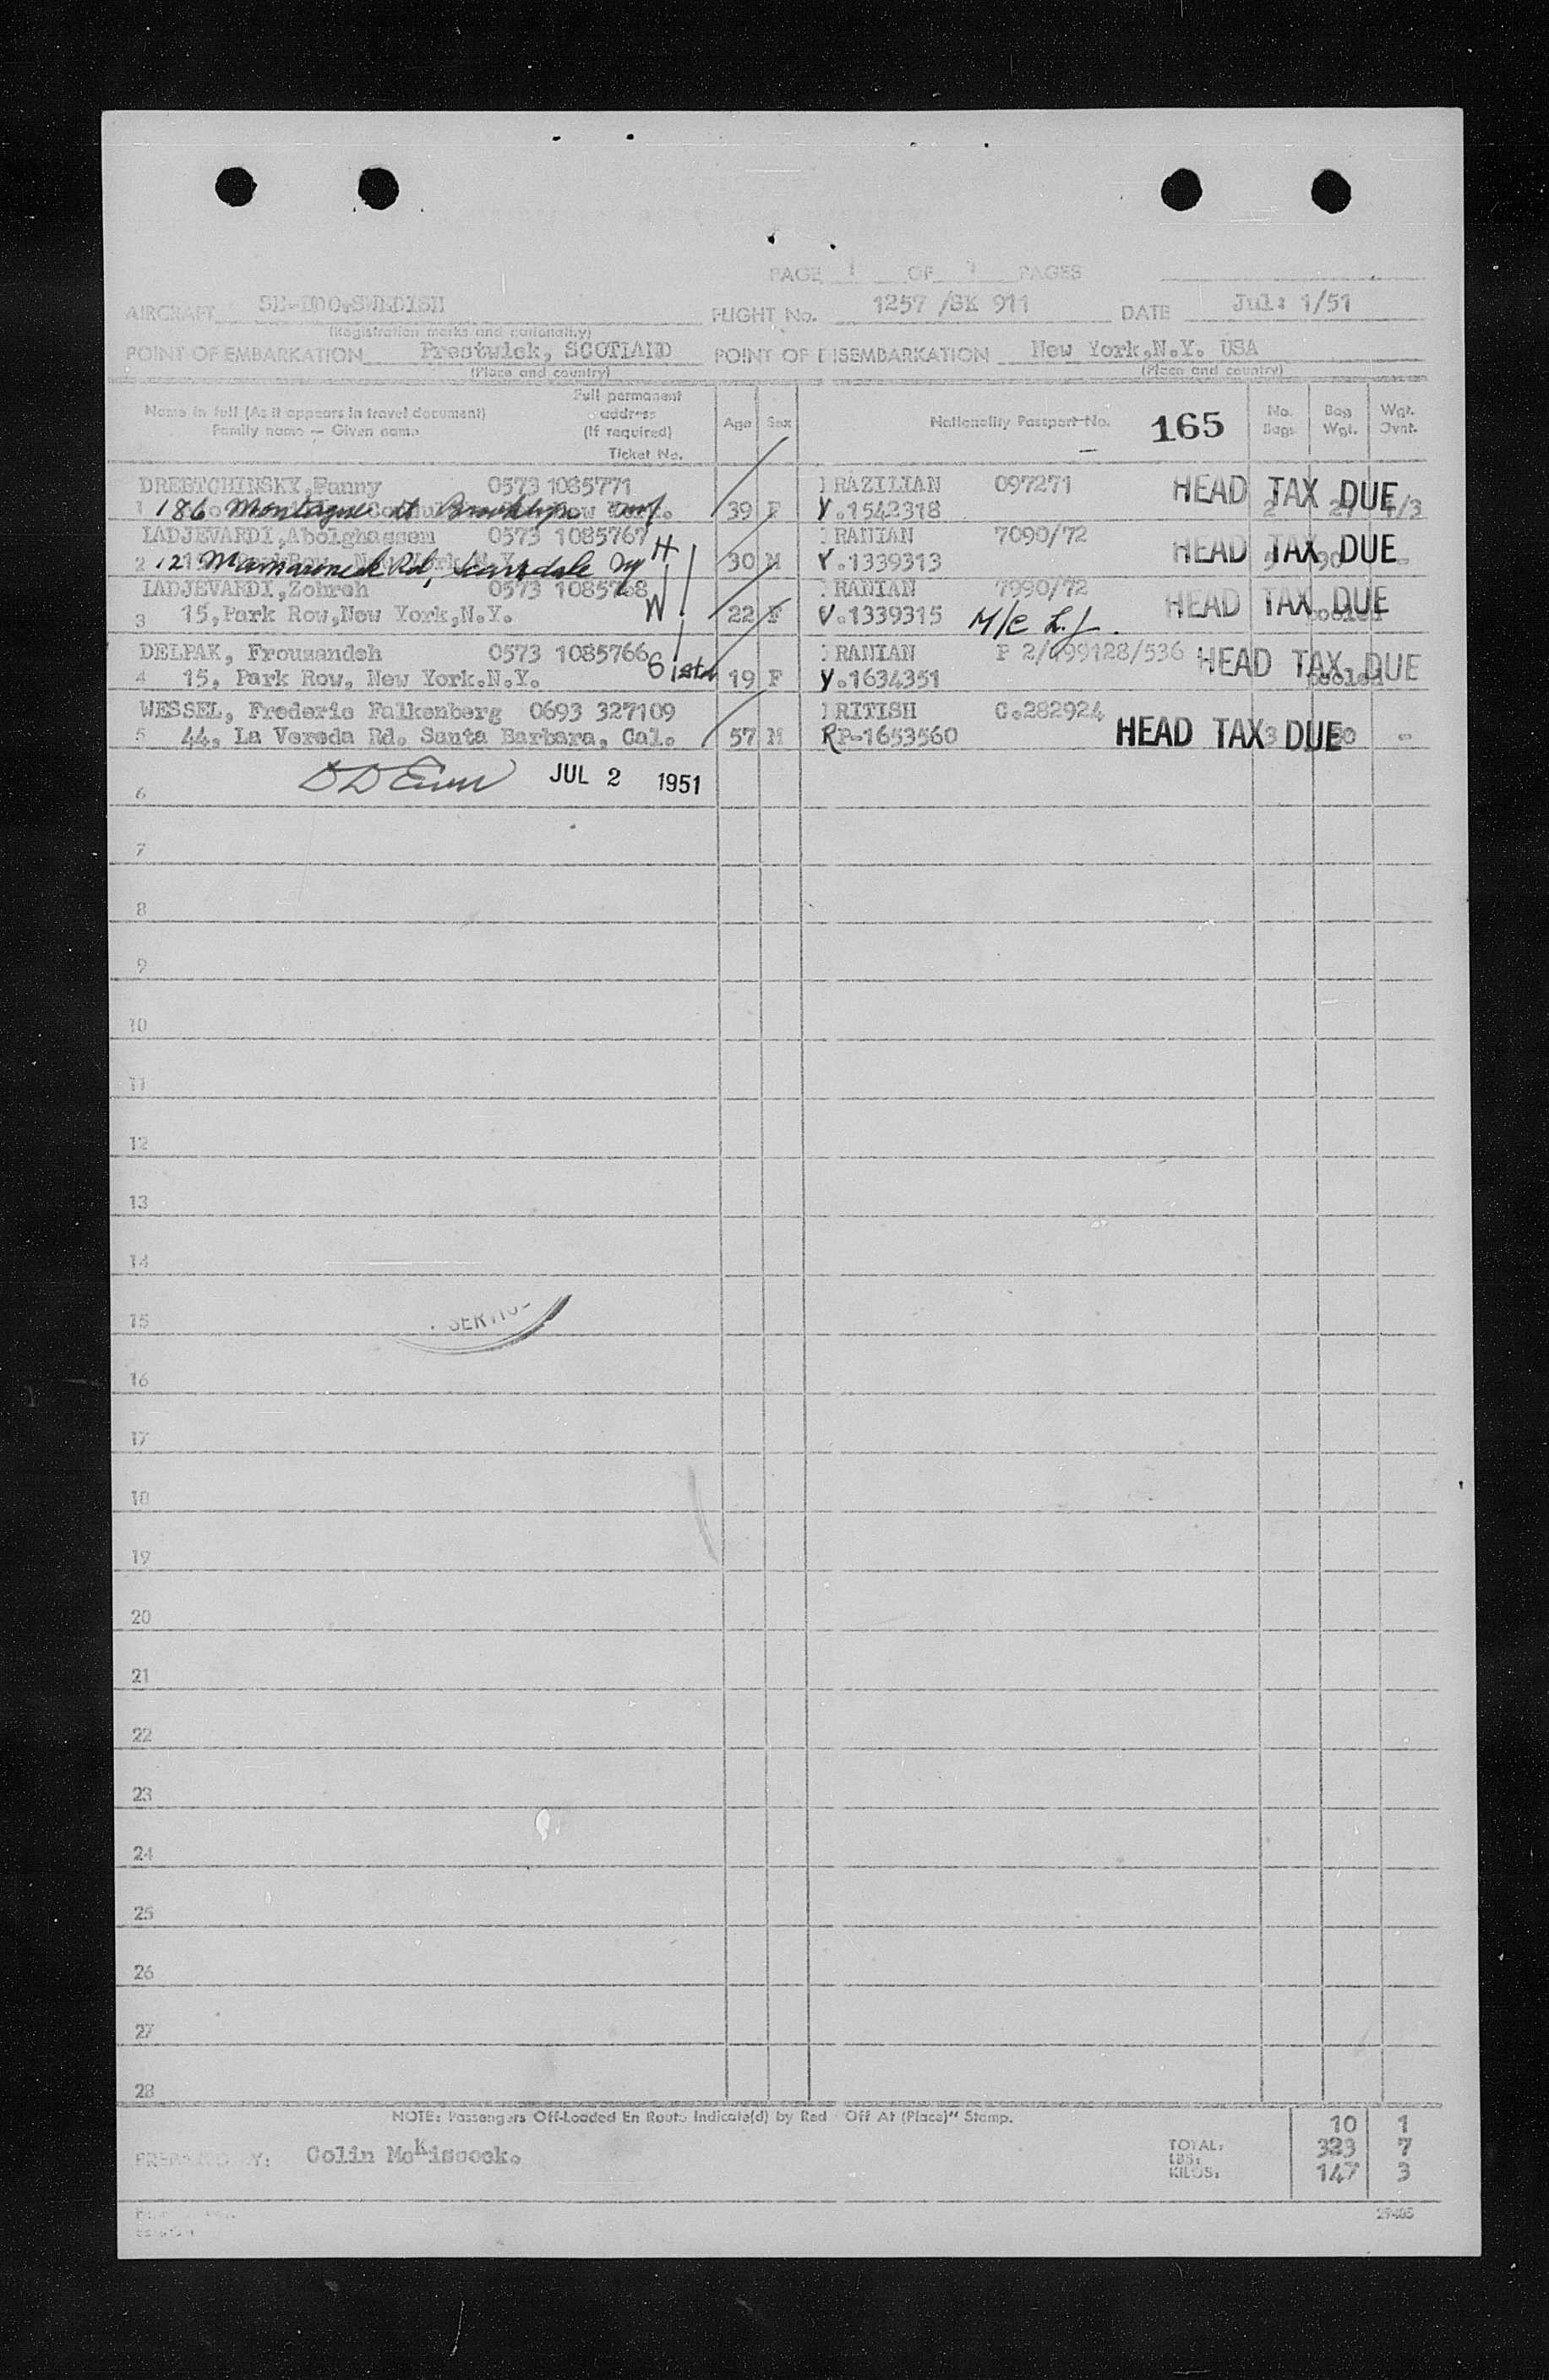 PAGE 1 OF PAGES
AIRCRAFT SWEDISH FLIGHT No. 1257 /SK 911 DATE Jul: 1/51
(Registration marks and nationality)
POINT OF EMBARKATION Prestwick, SCOTLAND POINT OF DISEMBARKATION New York,N.Y. USA
(Place and country) (Place and country)
Name in full (As it appears in travel document) Full permanent address (If required) Age Sex Nationality Passport No. 165 No. Bags Bag Wgt. Wgt. Ovnt.
Family name — Given name Ticket No.
DREETCHINSKY,Fanny 0573 1085771 BRAZILIAN 097271 HEAD TAX DUE
1 186 Montague St Brooklyn 39 F V.1542318 2 1/3
LADJEVARDI,Abolghassem 0573 1085767 H IRANIAN 7090/72 HEAD TAX DUE
2 12 Mamaroneck Rd, Scarsdale Ny 30 M V.1339313
LADJEVARDI,Zohreh 0573 1085768 W IRANIAN 7090/72 HEAD TAX DUE
3 15,Park Row,New York,N.Y. 22 F V.1339315 M/c L.J. pooled
DELPAK, Frouzandeh 0573 1085766 Sister IRANIAN P 2/499128/536 HEAD TAX DUE
4 15, Park Row, New York.N.Y. 19 F V.1634351 pooled
WESSEL, Frederic Falkenberg 0693 327109 BRITISH C.282924
5 44, La Vereda Rd. Santa Barbara, Cal. 57 M RP-1653560 HEAD TAX DUE 3 -
6 JUL 2 1951
7
8
9
10
11
12
13
14
15 SERVICE
16
17
18
19
20
21
22
23
24
25
26
27
28
NOTE: Passengers Off-Loaded En Route Indicate(d) by Red "Off At (Place)" Stamp.
10 1
PREPARED BY: Colin McKissock. TOTAL: LBS: 323 7
KILOS: 147 3